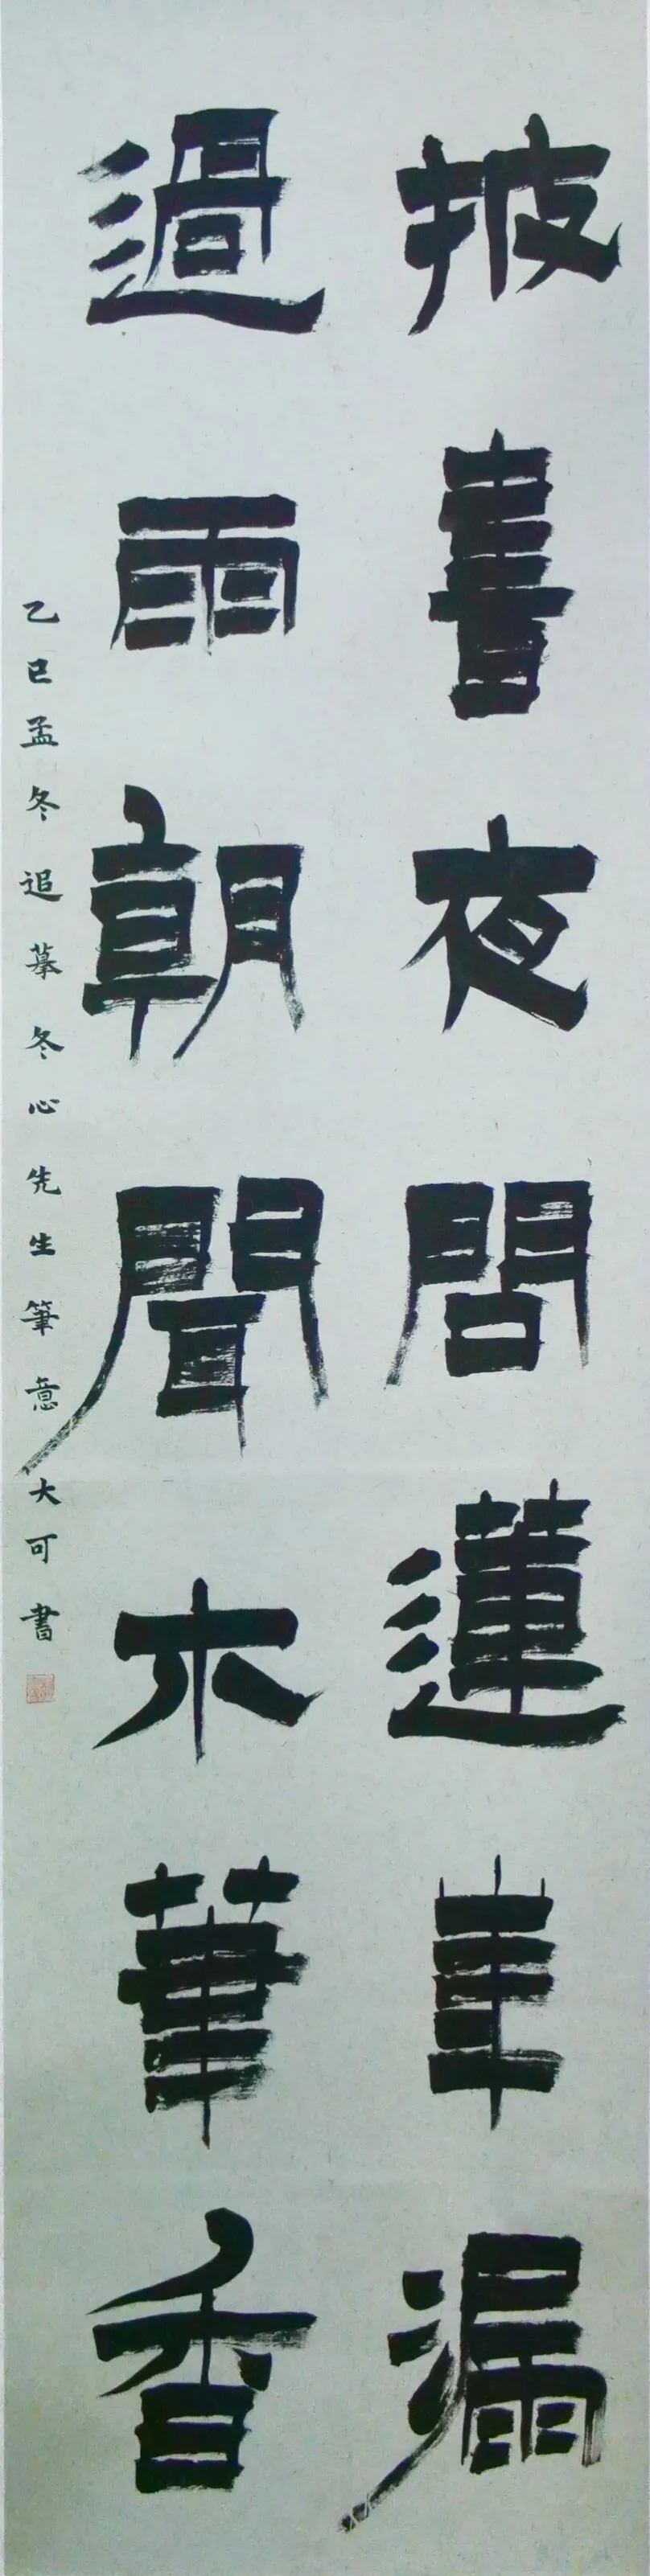 披書夜問蓮華漏
過雨朝聞木筆香
乙巳孟冬追摹冬心先生筆意 大可書